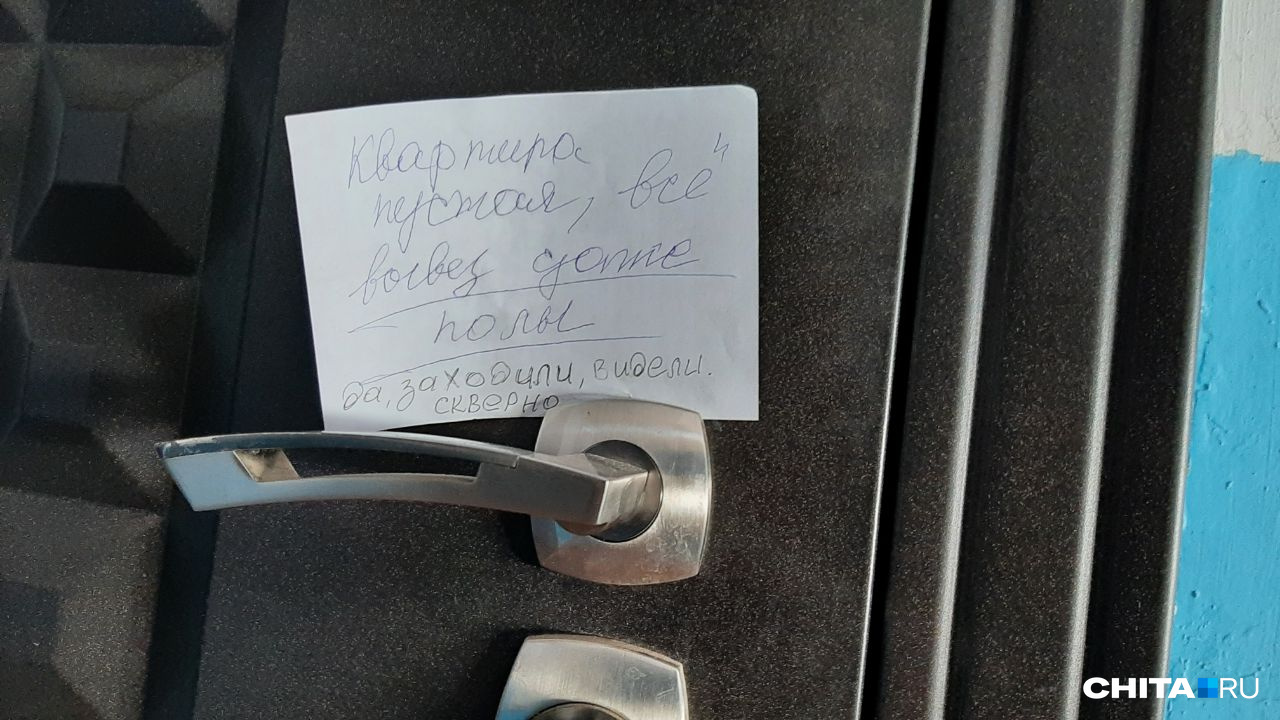 Квартира
пустая, всё
вывез даже
полы
да, заходили, видели.
скверно
CHITA.RU